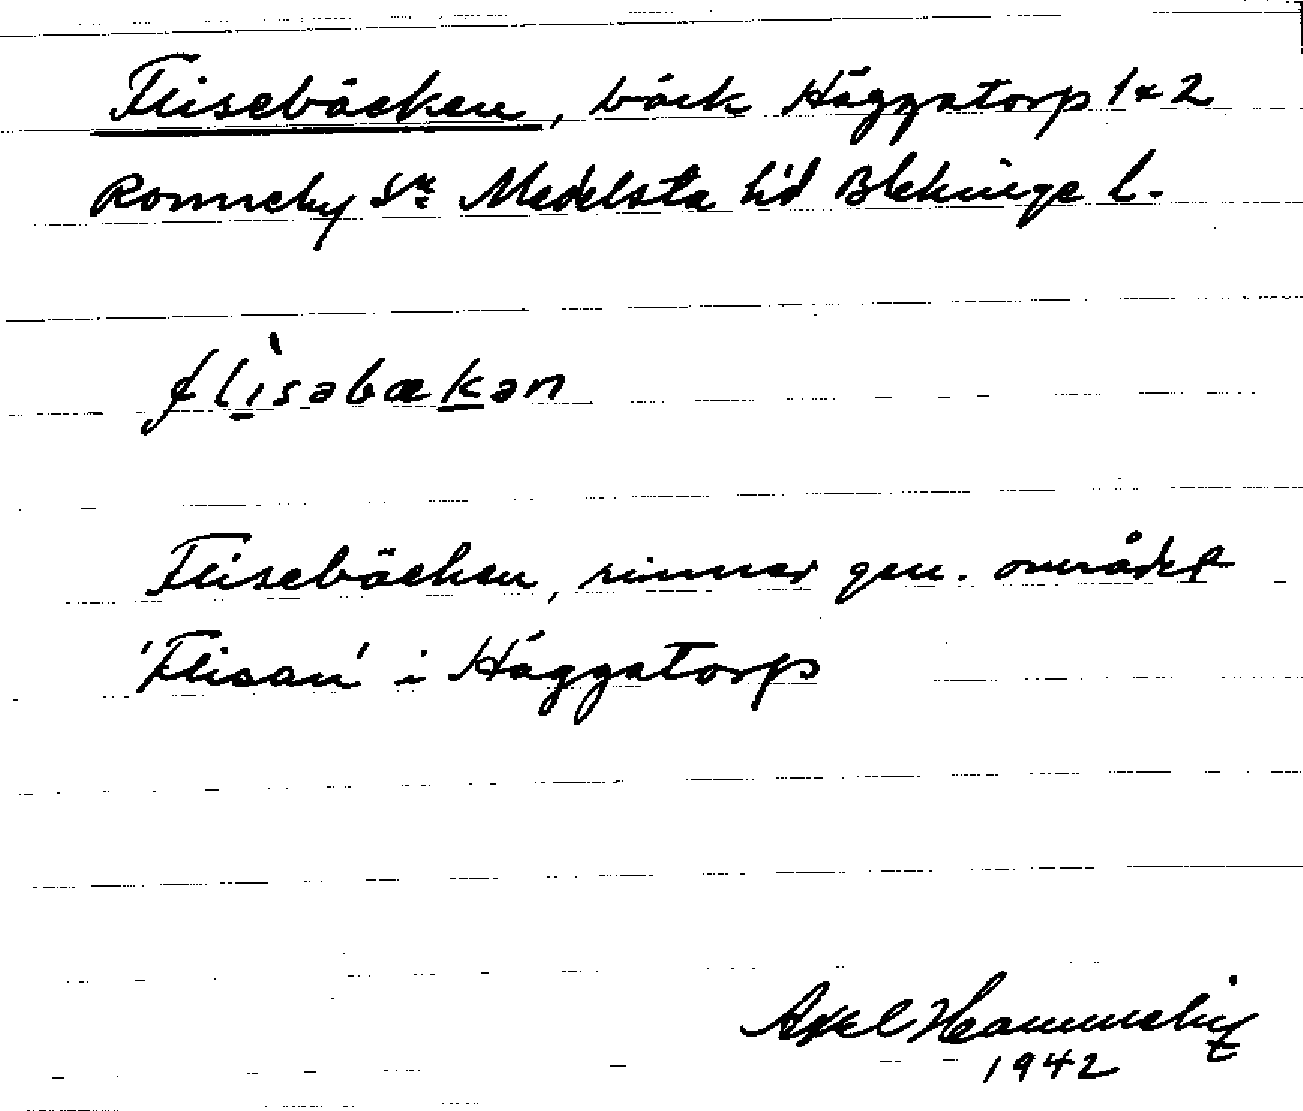 Flisebäcken, bäck Häggatorp 1 & 2
Ronneby sn Medelsta hd Blekinge l.
flìsəbækən
Flisebäcken, rinner gen. området
'Flisan' i Häggatorp
Axel
1942